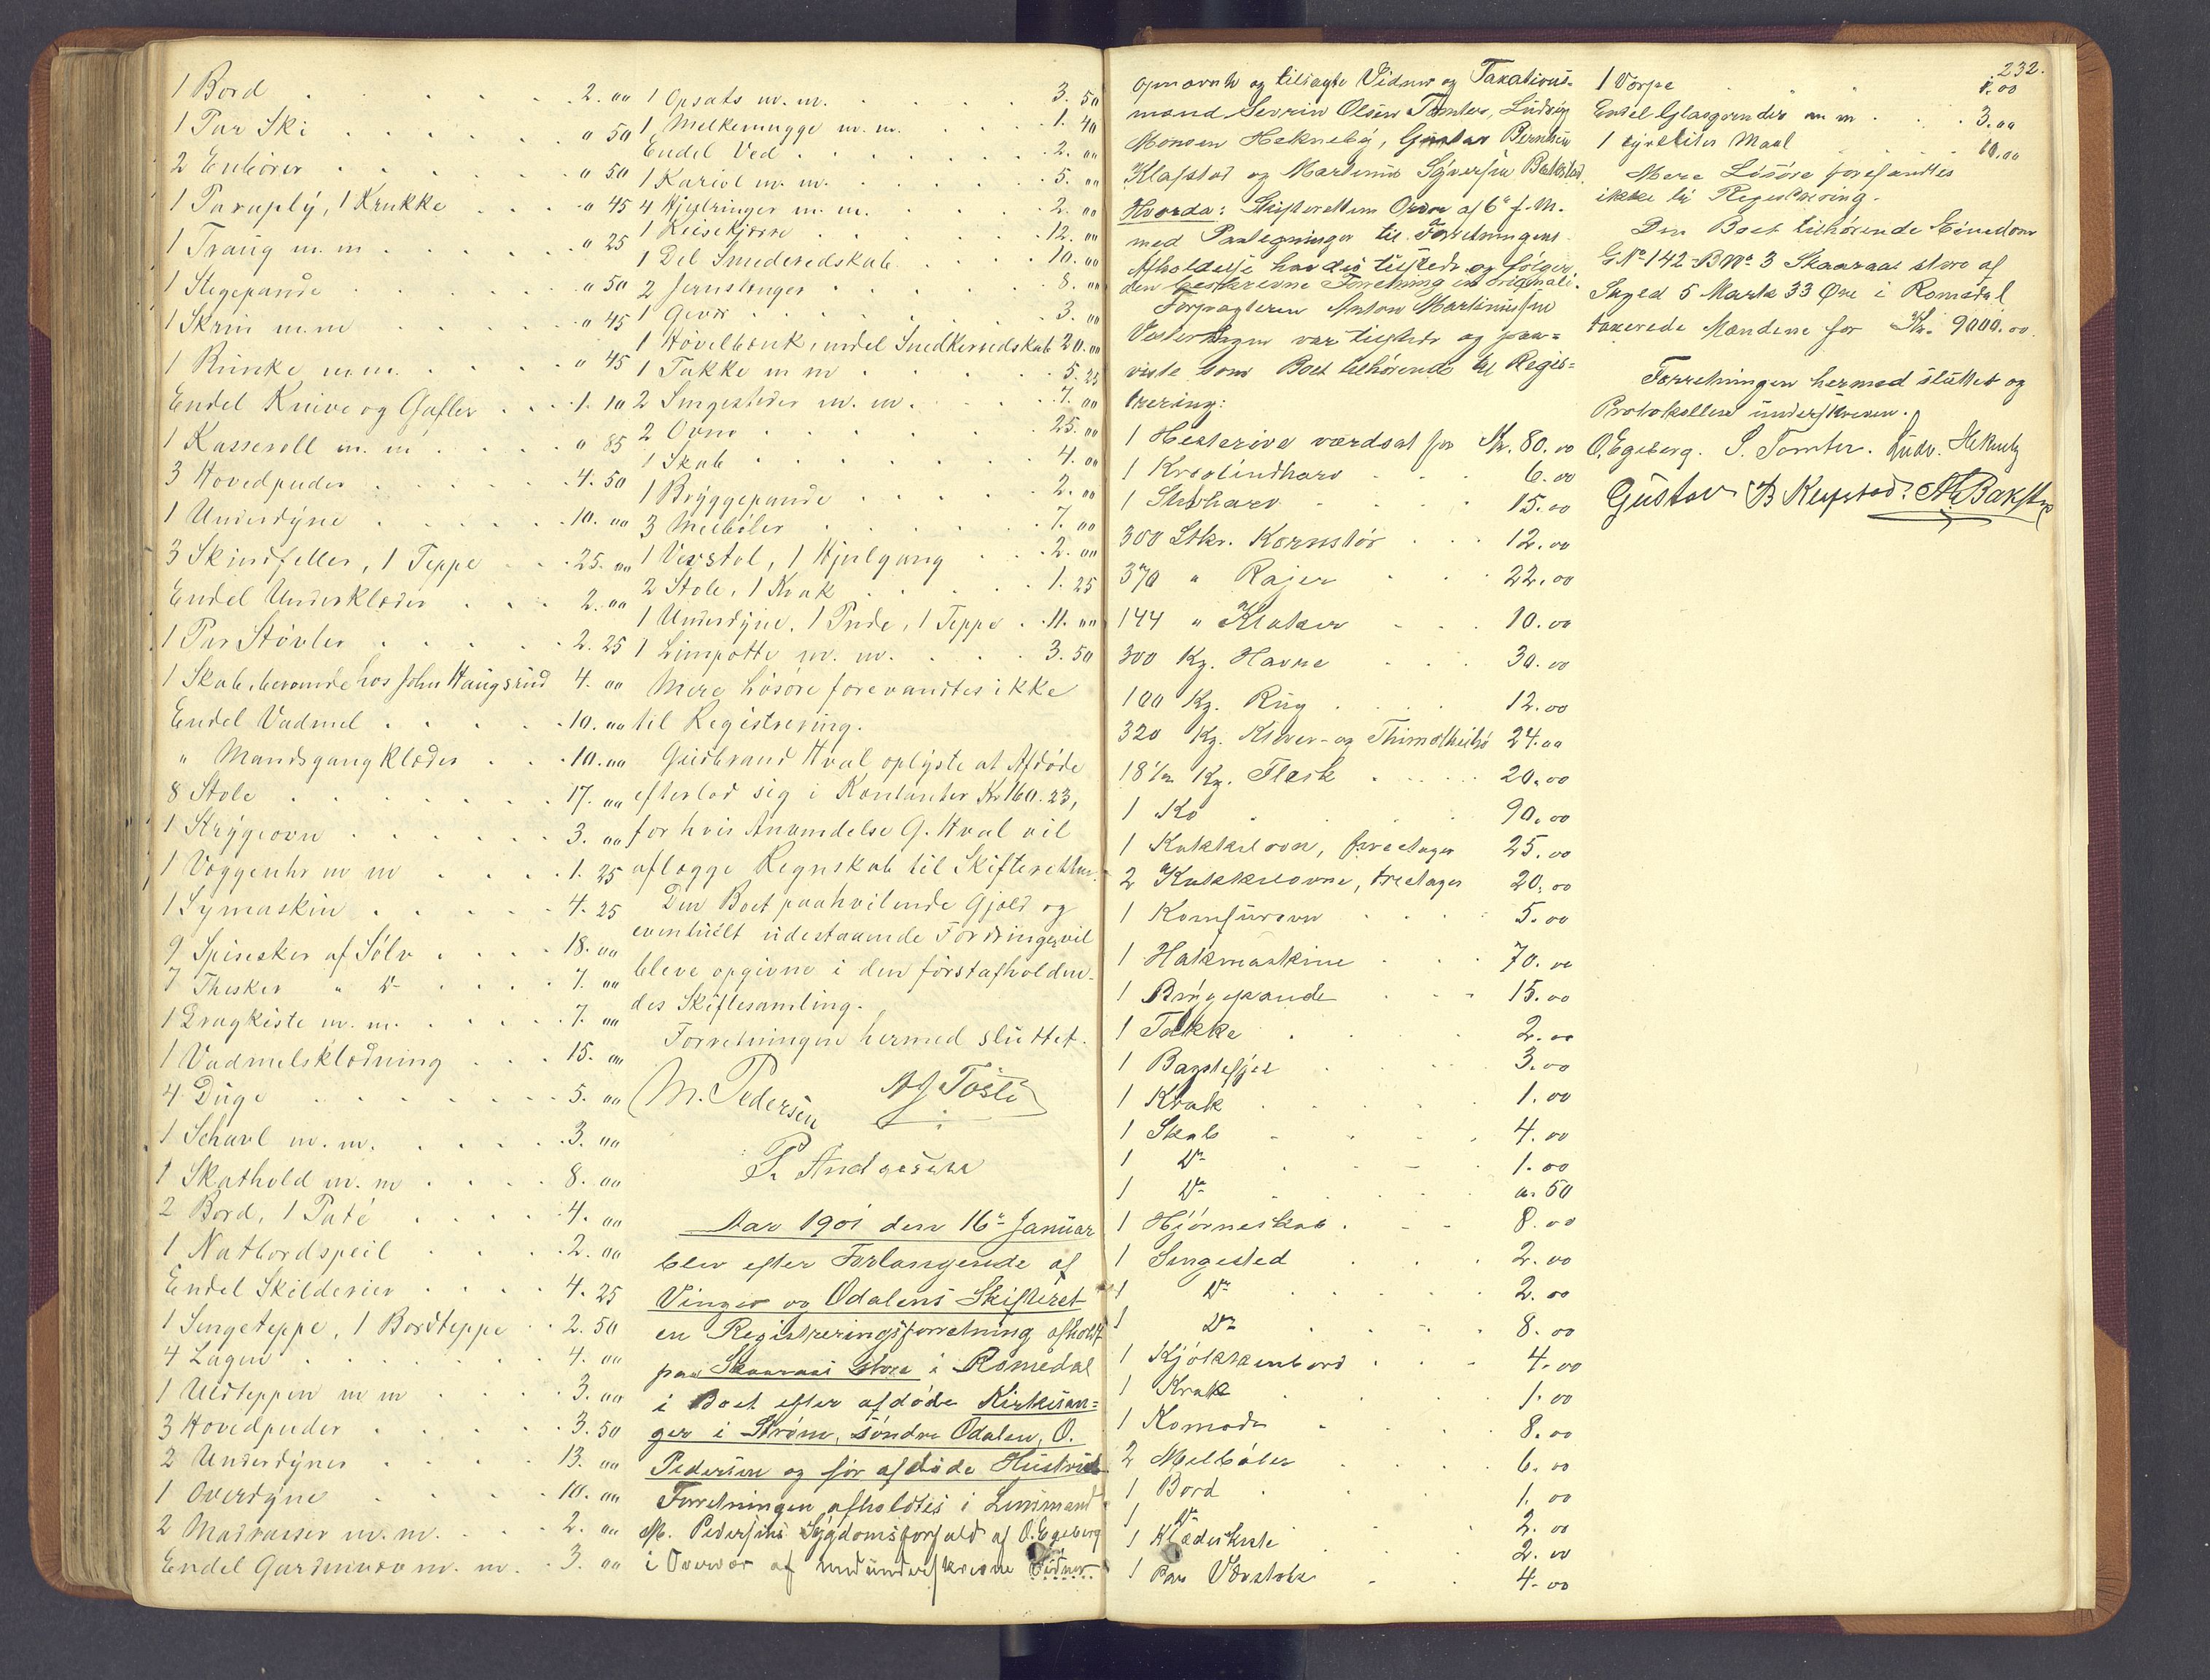 1 Bord 2. 00
1 Par Ski " 50
2 " 50
1 Paraply, 1 Krukke " 45
1 Traug m. m. " 25
1 Stegepande " 50
1 Skrin m. m " 45
1 m. m. " 45
Endel Knive og Gafler 1. 10
1 Kasseroll m. m " 85
3 Hovedpuder 4. 50
1 Underdyne 10. 00
3 Skindfeller, 1 Teppe 25. 00
Endel Underklæder 2. 00
1 Par Støvler 2. 25
1 Skab, beroende hos John Haugsrud 4. 00
Endel Vadmel 10. 00
" Mandsgangklæder 10. 00
8 Stole 17. 00
1 Strygeovn 3. 00
1 Væggeuhr m m 1. 25
1 Symaskin 4. 25
9 Spisesker af Sølv 18. 00
7 Thesker " Do 7. 00
1 Dragkiste m. m. 7. 00
1 Vadmelsklædning 15. 00
4 Duge 5. 00
1 Schavl m. m. 3. 00
1 Skathold m. m 8. 00
2 Bord, 1 4. 00
1 Natbordspeil 2. 00
Endel Skilderier 4. 25
1 Sengeteppe, 1 Bordteppe 2. 50
4 Lagen 4. 00
1 Uldteppen m m 3. 00
3 Hovedpuder 3. 50
2 Underdyner 13. 00
1 Overdyne 10. 00
2 Madrasser m. m. 2. 00
Endel Gardiner m. m. 3. 00
1 Opsats m. m. 3. 50
1 Melkemugge m. m. 1. 40
Endel Ved 2. 00
1 Kariol m. m. 5. 00
4 Hjulringer m. m. 2. 00
1 Reisekjærre 12. 00
1 Del Smederedskab 10. 00
2 Jernstenger 8. 00
1 Gevær 3. 00
1 Høvelbænk, endel Snedkerredskab 20. 00
1 Takke m m 5. 25
2 Sengesteder m. m. 7. 00
2 Ovne 25. 00
1 Skab 4. 00
1 Bryggepande 2. 00
3 Melbøler 7. 00
1 Vevstol, 1 Hjulgang 2. 00
2 Stole, 1 Krak 1. 25
1 Underdyne, 1 Pude, 1 Teppe 11. 00
1 Limpotte m. m. 3. 50
Mere Løsøre forevandtes ikke
til Registrering.
Gudbrand Hval oplyste at Afdøde
efterlod sig i Kontanter Kr 160. 23,
for hvis Anvendelse G. Hval vil
aflægge Regnskab til Skifteretten.
Den Boet paahvilende Gjæld og
eventuelt udestaaende Fordringer vil
bleve opgivne i den førstafholden-
des Skiftesamling.
Forretningen hermed sluttet.
M. Pedersen
P. Andersen
Aar 1901 den 16de Januar
blev efter Forlangende af
Vinger og Odalens Skifteret
en Registreringsforretning afholdt
paa Skaaraas store i Romedal
i Boet efter afdøde Kirkesan=
ger i Strøm, søndre Odalen, O.
Pedersen og før afdøde Hustru
Forretningen afholdtes i Lensmand
M. Pedersens Sygdomsforfald af O. Egeberg
i Overvær af medunderskrevne Vidner
232.
opnævnte og tilsagte Vidner og Taxations-
mænd Severin Olsen Tomter, Ludvig
Monsen Hekneby, Gustav Berntsen
Klafstad og Martinus Syversen Bakstad.
Hvorda: Skifterettens Ordre af 6te f. M.
med Paategninger til Forretningens
Afholdelse havdes tilstede og følger
den beskrevne Forretning in originali.
Forpagteren Anton Martinussen
Vesterhagen var tilstede og paa=
viste som Boet tilhørende til Regis=
trering:
1 Hesterive værdsat for Kr. 80. 00
1 Kroglindharv 6. 00
1 Stivharv 15. 00
300 Stkr. Kornstør 12. 00
370 " Rajer 22. 00
144 " 10. 00
300 Kg. Havre 30. 00
100 Kg. Rug 12. 00
320 Kg. Kløver- og Thimotheihø 24. 00
18½ Kg. Flesk 20. 00
1 Ko 90. 00
1 Kakkelovn, 25. 00
2 Kakkelovne, treetages 20. 00
1 Komfurovn 5. 00
1 Hakmaskine 70. 00
1 Brygepande 15. 00
1 Takke 2. 00
1 Bagstefjel 3. 00
1 Krak 1. 00
1 Skab 4. 00
1 Do 1. 00
1 Do 0. 50
1 Hjørneskab 8. 00
1 Sengested 2. 00
1 Do 2. 00
1 Do 8. 00
1 Kjøkkenbord 4. 00
1 Krak 1. 00
1 Komode 8. 00
2 Melbøler 6. 00
1 Bord 1. 00
1 Do 2. 00
1 Klædeskiste 2. 00
1 Par Vævstole 4. 00
1 Vorpe 1. 00
Endel Glasgrinder m m 3. 00
1 Maal 10. 00
Mere Løsøre forefandtes
ikke til Registrering.
Den Boet tilhørende Eiendom
G No 142 - B No 3 Skaaraas store af
Skyld 5 Mark 33 Øre i Romedal
taxerede Mændene for Kr. 9000. 00
Forretningen hermed sluttet og
Protokollen underskreven.
O. Egeberg. S. Tomter. Ludv. Hekneby
Gustav B Klafstad. M. Bakstad